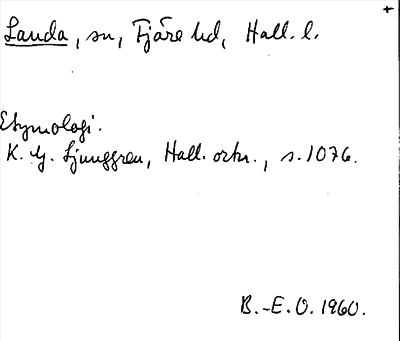 +
Landa, sn, Fjäre hd, Hall. l.
Etymologi.
K. G. Ljunggren, Hall. ortn., s. 1076.
B.-E. O. 1960.